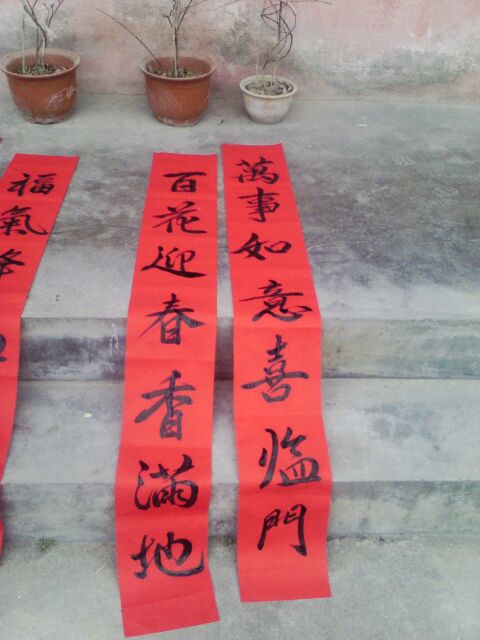 萬事如意喜臨門
百花迎春香滿地
福氣